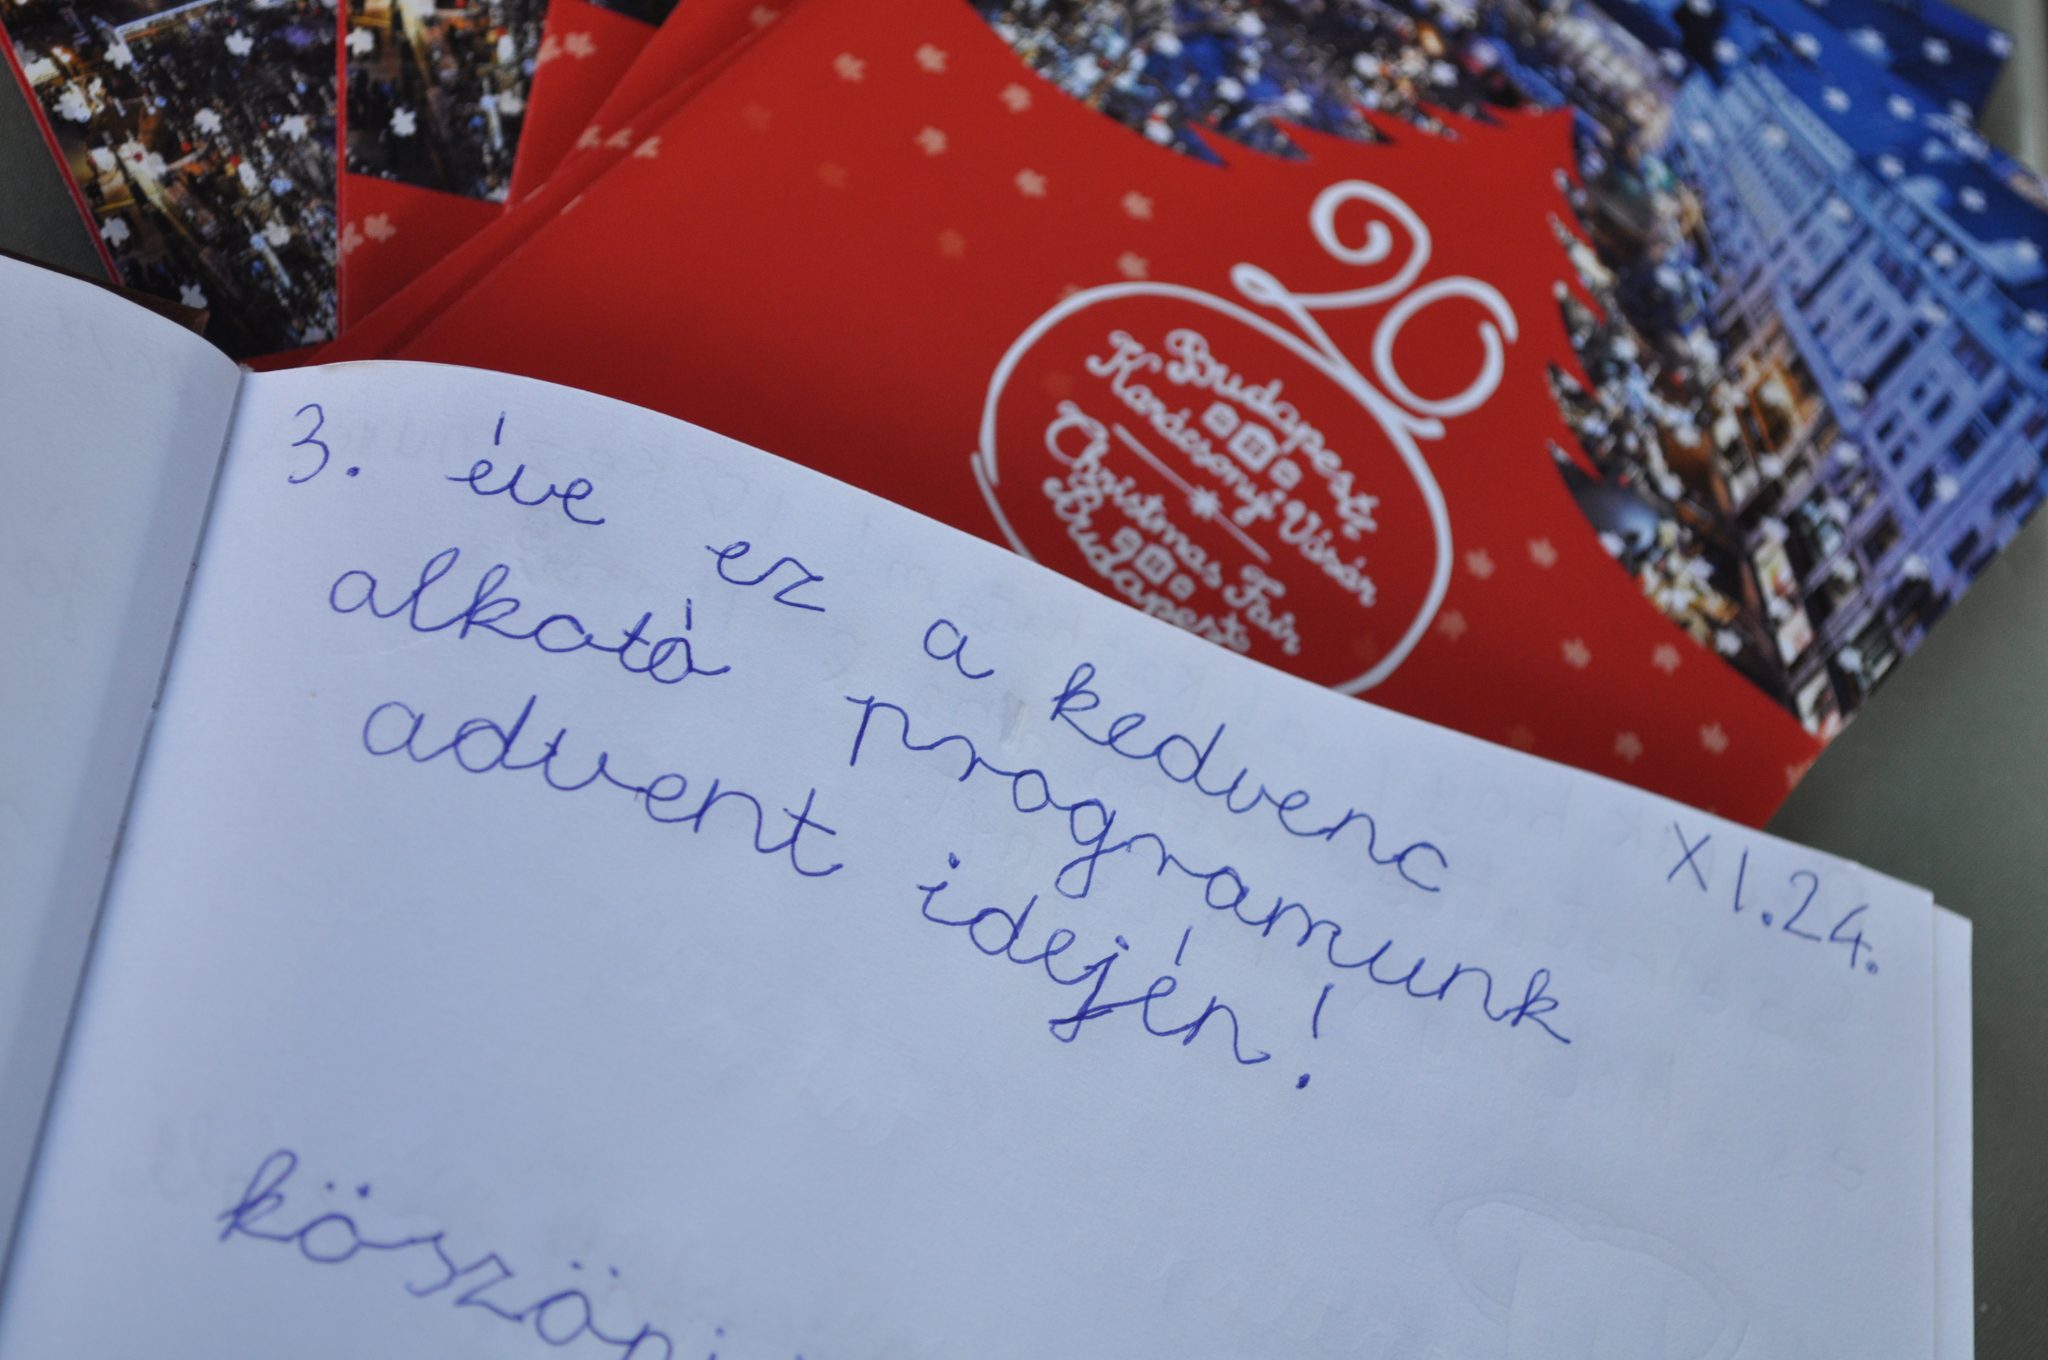 20
Budapesti
Karácsonyi Vásár
Christmas Fair
Budapest
3. éve ez a kedvenc
alkotó programunk
advent idején!
XI.24.